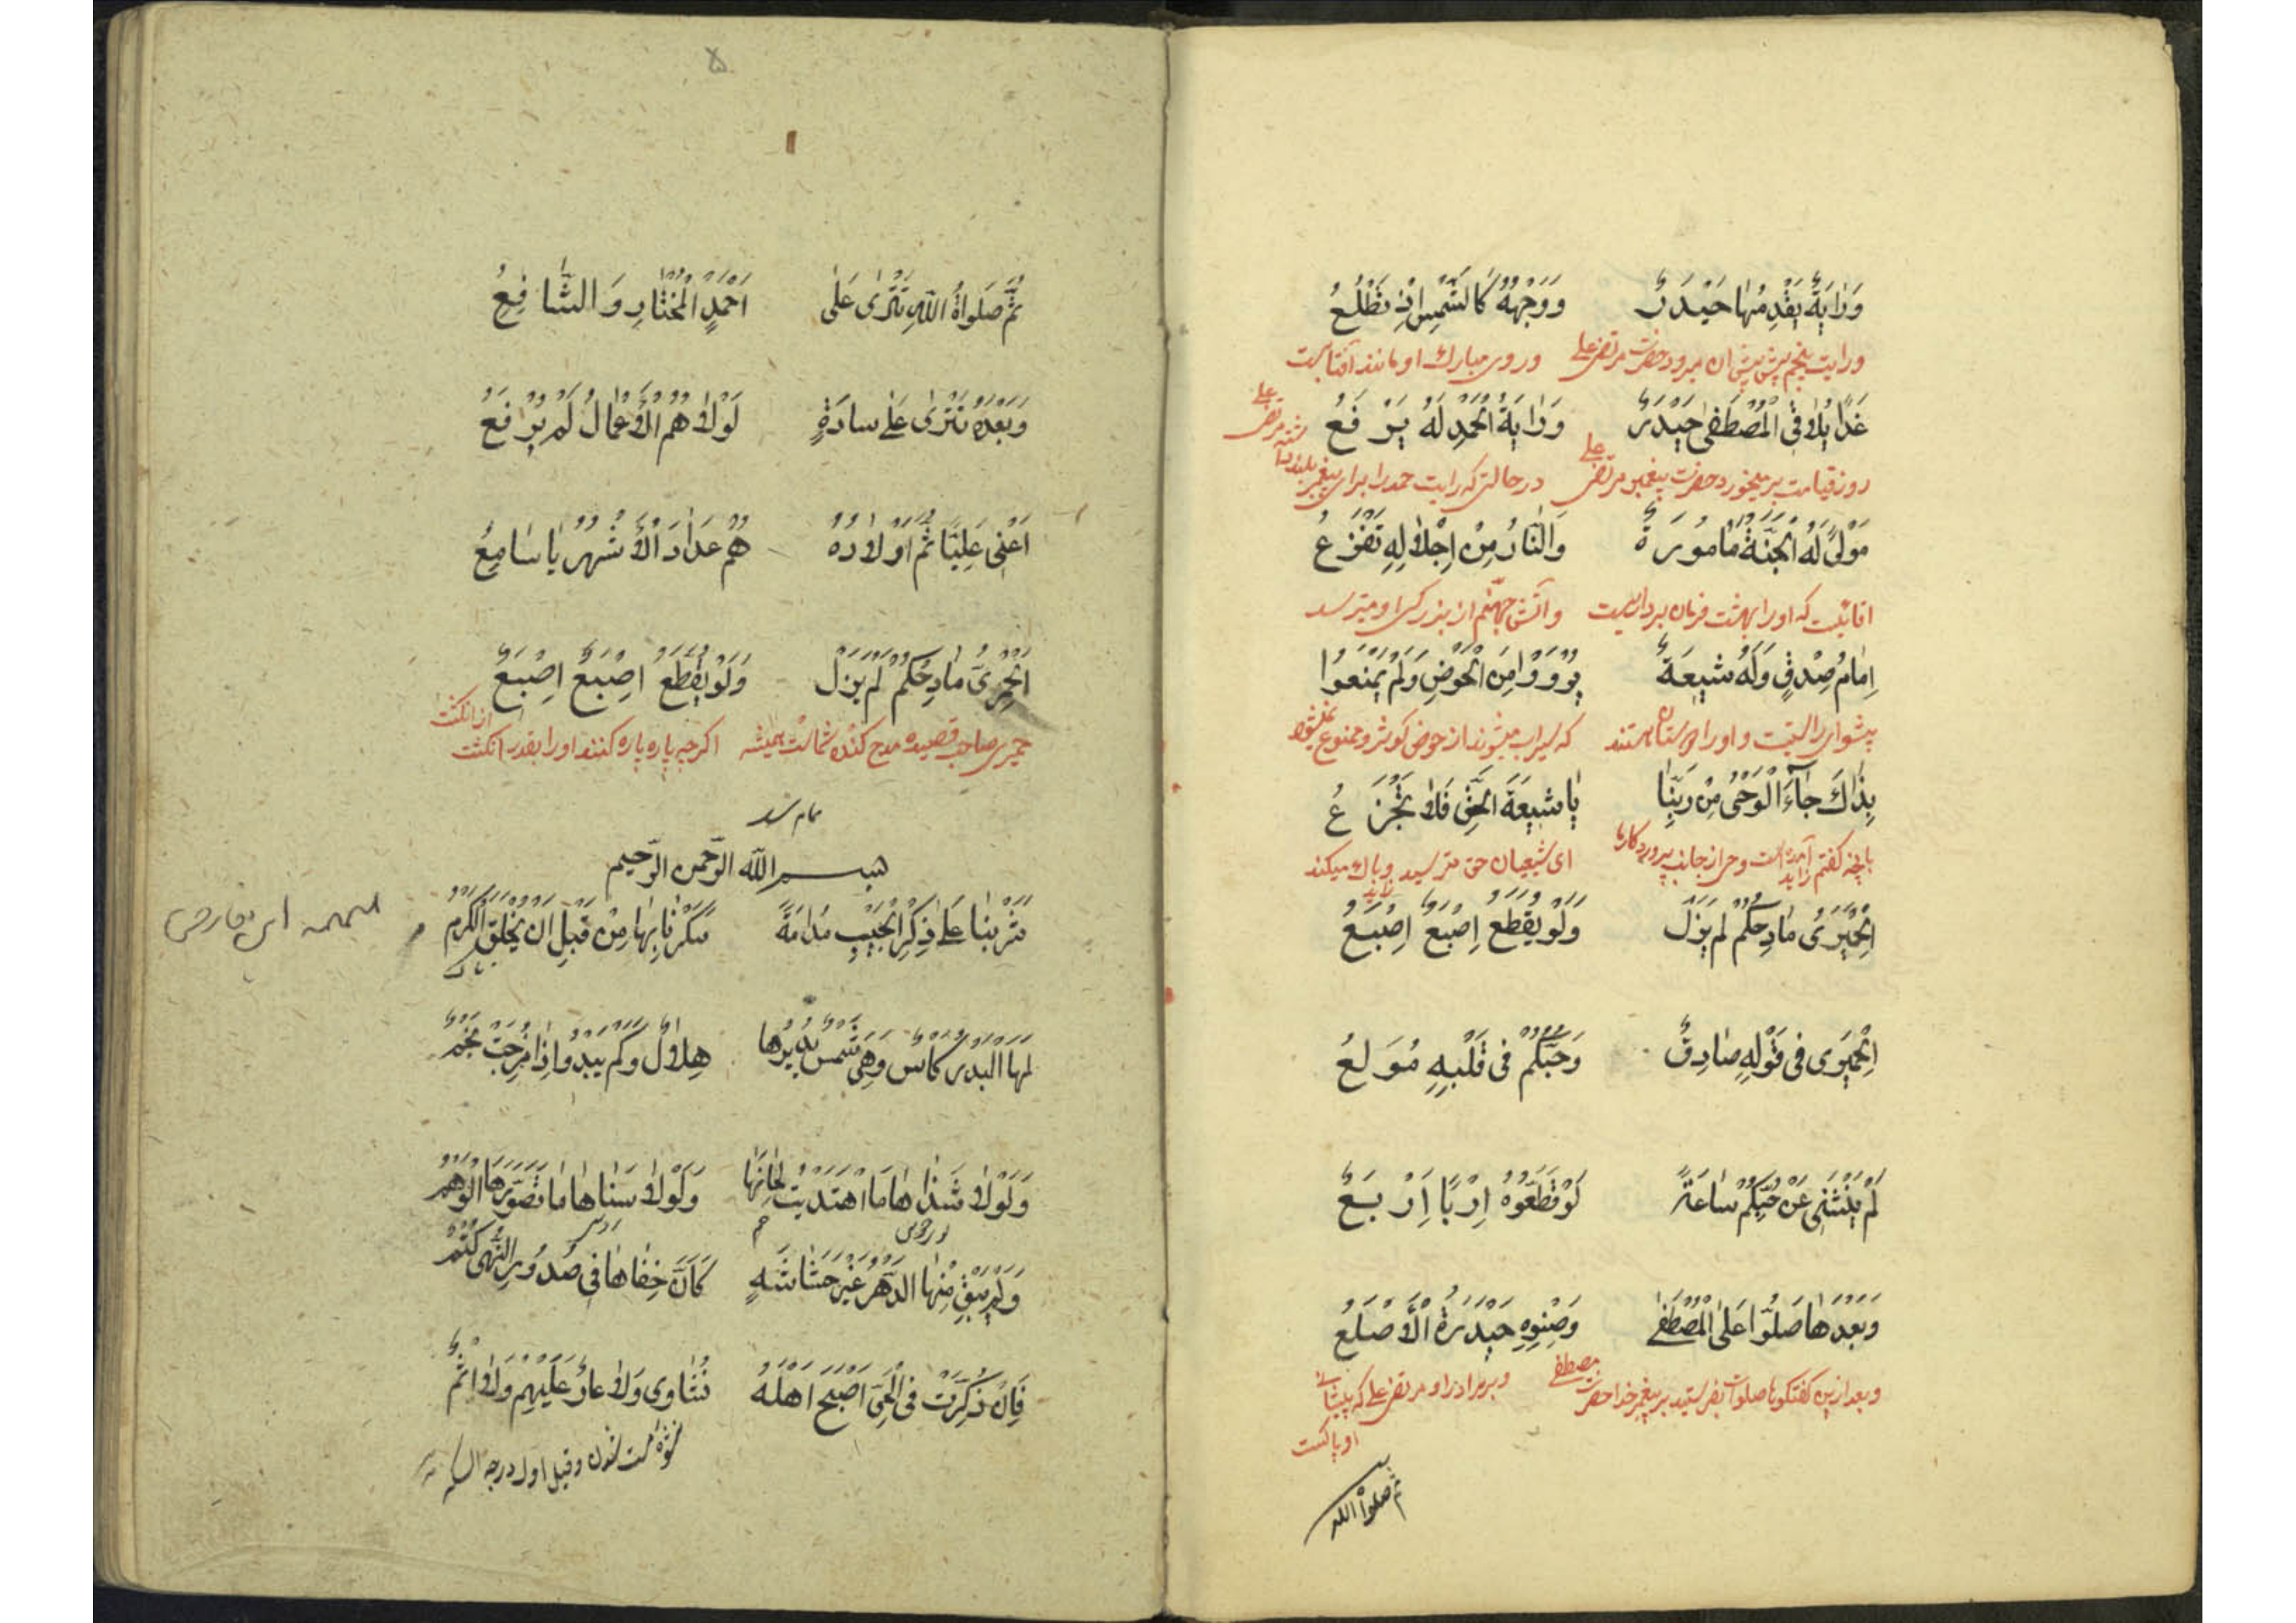 وَرٰایَةٌ یَقْدِمُهٰا حَیْدَرٌ وَوَجْهُهُ کَالشَّمْسِ اِذْ تَطْلُعُ
ورایت پنجم پیش پیش ان میرود حضرت مرتضی علی و روی مبارک او مانند آفتابست
غَدًا یُلٰاقِی الْمُصْطَفیٰ حَیْدَرٌ وَرٰایَةُ الْحَمْدِ لَهُ یَرْفَعُ
روز قیامت بر میخورد حضرت پیغمبر مرتضی علی در حالتی که رایت حمد را برای پیغمبر بلند داشته مرتضی علی
مَوْلیً لَهُ الْجَنَّةُ مَامُورَةٌ وَالنّٰارُ مِنْ اِجْلٰالِهِ تَفْزَعُ
اقائیست که اورا بهشت فرمان بردارست و آتش جهنم از بزرکی او میترسد
اِمٰامُ صِدْقٍ وَلَهُ شیعَةٌ یُرْوَوْا مِنَ الْحَوْضِ وَلَمْ یُمْنَعُوا
پیشوای راستیست و اورا دوستان هستند که سیراب میشوند از حوض کوثر و ممنوع نمیشوند
بِذٰاكَ جٰآءَ الْوَحْیُ مِنْ رَبِّنٰا یٰا شیعَةَ الْحَقِّ فَلٰا تَجْزَعُ
بانچه کفتم آمده است وحی از جانب پروردکار ما ای شیعیان حق مترسید و باک میکند
اَلْحِمْیَرِیُّ مٰادِحُکُمْ لَمْ یَزَلْ وَلَوْ یُقَطَّعُ اِصْبَعٌ اِصْبَعٌ
اَلْحِمْیَرِی فی قَوْلِهِ صٰادِقٌ وَحُبُّکُمْ فی قَلْبِهِ مُولَعُ
لَمْ یَنْثَنِی عَنْ حُبِّکُمْ سٰاعَةً لَوْ قَطَّعُوهُ اِرْبًا اِرْبَعٌ
وَبَعْدَهٰا صَلُّوا عَلَی الْمُصْطَفیٰ وَصِنْوِهِ حَیْدَرَةُ الْأَصْلَعُ
و بعد ازین کفتکوها صلوات بفرستید بر پیغمبر خدا حضرت مصطفی و بر برادر او مرتضی علی که پیشانی
او پاکست
ثم صلوٰة الله
۵
ثُمَّ صَلَواةُ اللّٰهِ تَتْریٰ عَلیٰ اَحْمَدٍ الْمُخْتٰارِ وَالشّٰافِعُ
وَبَعْدَهُ تَتْریٰ عَلیٰ سادَةٍ لَوْلٰا هُمُ الْأَعْمٰالُ لَمْ یُرْفَعُ
اَعْنی عَلِیًّا ثُمَّ اَوْلٰادَهُ هُمْ عِدٰادَ الْأَشْهُرِ یٰا سٰامِعُ
اَلْحِمْیَرِیُّ مٰادِحُکُمْ لَمْ یَزَلْ وَلَوْ یُقَطَّعُ اِصْبَعٌ اِصْبَعٌ
حمیری صاحب قصیده مدح کننده شماست همیشه اکرچه پاره پاره کنند او را بقدر انکشت از انکشت
تمام شد
بسم الله الرّحمن الرّحیم
شَرِبْنٰا عَلیٰ ذِکْرِ الْحَبیبِ مُدٰامَةً سَکَرْنٰا بِهٰا مِنْ قَبْلِ اَنْ یُخْلَقَ الْکَرْمُ
لَهَا الْبَدْرُ کَأْسٌ وَهِیَ شَمْسٌ یُدیرُها هِلٰالٌ وَکَمْ یَبْدُوا اِذٰا مُزِجَتْ نَجْمٌ
وَلَوْلٰا شَذٰاهٰا مَا اهْتَدَیْتُ لِحٰانِهٰا وَلَوْلٰا سَنٰاهٰا مٰا تَصَوَّرَهَا الْوَهْمُ
وَلَمْ یُبْقِ مِنْهٰا الدَّهْرُ غَیْرَ حَشٰاشَةٍ کَاَنَّ خِفٰاهٰا فی صُدُورِ النُّهیٰ کَتْمٌ
فَاِنْ ذُکِرَتْ فِی الْحَیِّ اَصْبَحَ اَهْلُهُ نَشٰاوی وَلٰا عٰارٌ عَلَیْهِمْ وَلٰا اِثْمٌ